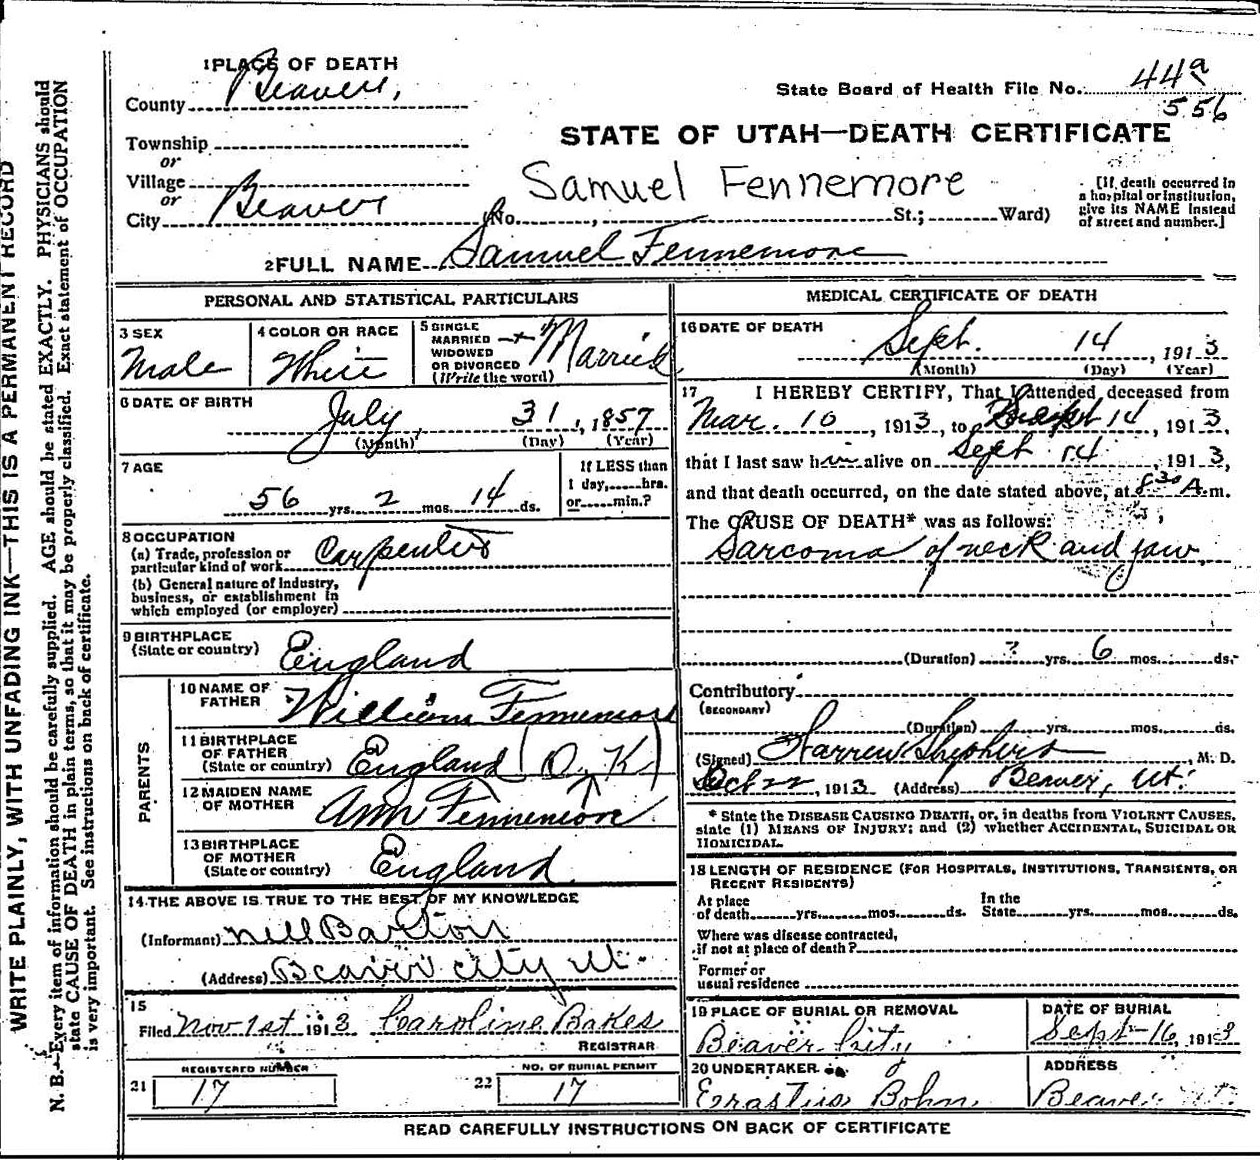 1 PLACE OF DEATH
County Beaver,
State Board of Health File No. 44a
556
STATE OF UTAH—DEATH CERTIFICATE
Township
or
Village
or
City Beaver
Samuel Fennemore
(No. , St.; Ward)
[If death occurred in a hospital or institution, give its NAME instead of street and number.]
2 FULL NAME Samuel Fennemore
PERSONAL AND STATISTICAL PARTICULARS
3 SEX
Male
4 COLOR OR RACE
White
5 SINGLE
MARRIED
WIDOWED
OR DIVORCED
(Write the word)
Married
6 DATE OF BIRTH
July 31, 1857
(Month) (Day) (Year)
7 AGE
56 yrs. 2 mos. 14 ds.
If LESS than
1 day, hrs.
or min.?
8 OCCUPATION
(a) Trade, profession or
particular kind of work Carpenter
(b) General nature of Industry,
business, or establishment in
which employed (or employer)
9 BIRTHPLACE
(State or country) England
PARENTS
10 NAME OF
FATHER William Fennemore
11 BIRTHPLACE
OF FATHER
(State or country) England (O.K)
12 MAIDEN NAME
OF MOTHER Ann Fennemore
13 BIRTHPLACE
OF MOTHER
(State or country) England
14 THE ABOVE IS TRUE TO THE BEST OF MY KNOWLEDGE
(Informant) Nell Barton
(Address) Beaver City Ut.
15
Filed Nov 1st 1913 Caroline Bakes
REGISTRAR
21 REGISTERED NUMBER
17
22 NO. OF BURIAL PERMIT
17
MEDICAL CERTIFICATE OF DEATH
16 DATE OF DEATH
Sept. 14, 1913
(Month) (Day) (Year)
17 I HEREBY CERTIFY, That I attended deceased from
Mar. 10, 1913, to Sept 14, 1913,
that I last saw him alive on Sept 14, 1913,
and that death occurred, on the date stated above, at 8 30 A.m.
The CAUSE OF DEATH* was as follows:
Sarcoma of neck and jaw
(Duration) ? yrs. 6 mos. ds.
Contributory
(SECONDARY)
(Duration) yrs. mos. ds.
(Signed) Warren Shepherd, M. D.
Oct 22, 1913 (Address) Beaver, Ut.
* State the DISEASE CAUSING DEATH, or, in deaths from VIOLENT CAUSES,
state (1) MEANS OF INJURY; and (2) whether ACCIDENTAL, SUICIDAL OR
HOMICIDAL.
18 LENGTH OF RESIDENCE (FOR HOSPITALS, INSTITUTIONS, TRANSIENTS, OR
RECENT RESIDENTS)
At place
of death yrs. mos. ds.
In the
State yrs. mos. ds.
Where was disease contracted,
if not at place of death?
Former or
usual residence
19 PLACE OF BURIAL OR REMOVAL
Beaver City
DATE OF BURIAL
Sept 16, 1913
20 UNDERTAKER
Erastus Bohn
ADDRESS
Beaver Ut.
READ CAREFULLY INSTRUCTIONS ON BACK OF CERTIFICATE
WRITE PLAINLY, WITH UNFADING INK—THIS IS A PERMANENT RECORD
N. B.—Every item of information should be carefully supplied. AGE should be stated EXACTLY. PHYSICIANS should
state CAUSE OF DEATH in plain terms, so that it may be properly classified. Exact statement of OCCUPATION
is very important. See instructions on back of certificate.